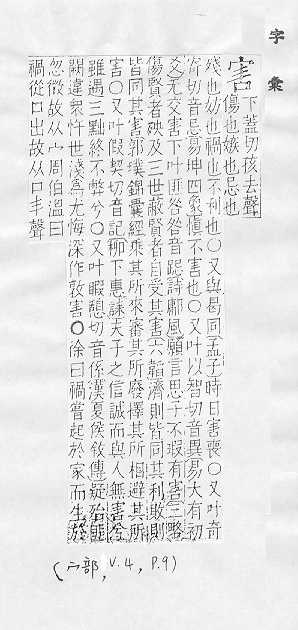 字彙
害 下蓋切孩去聲
傷也嫉也忌也
殘也妨也禍也不利也〇又與曷同孟子時日害喪〇又叶奇
寄切音忌易坤四象愼不害也〇又叶以智切音異易大有初
爻无交害下叶匪咎咎音跽詩鄘風願言思子不瑕有害三略
傷賢者殃及三世蔽賢者自受其害六韜濟則皆同其利敗則
皆同其害郭璞錦囊經乘其所來審其所廢擇其所相避其所
害〇又叶假契切音記柳下惠誄夫子之信誠而與人無害兮
雖遇三黜終不弊兮〇又叶暇憩切音係漢夏侯敘傳疑殆匪
闕違衆忤世淺爲尤悔深作敦害〇徐曰禍嘗起於家而生於
忽微故从宀周伯溫曰
禍從口出故从口丯聲
(宀部, V.4, P.9)